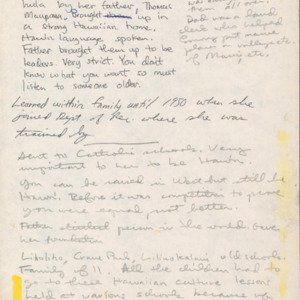 hula by her father, Thomas
brought up in
a strong Hawaiian home.
Hawn language spoken.
Father brought them up to be
leaders. Very strict. You don't
know what you want so must
listen to someone older.
them all over.
Dad was a land
clerk who helped
put native
in
of
Learned within family until 1950 when she
joined Dept. of Rec. where she was
trained by
Went to Catholic schools. Very
important to her to be Hawn.
You can be raised in West but still be
Hawn. Before it was competition to prove
you were equal, not better.
Father person in the world. Gave
her foundation
Liholiho, Liliuokalani old schools.
Family of 11. All the children had to
go to these Hawaiian culture lessons
held at various schools because of